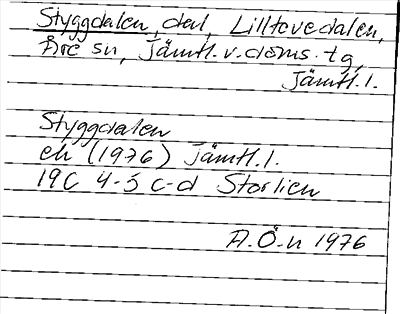 Styggdalen, dal, Lilltovedalen,
Åre sn, Jämtl. v. doms. tg,
Jämtl. l.
Styggdalen
ek (1976) Jämtl. l.
19C 4-5 c-d Storlien
A.Ö-n 1976